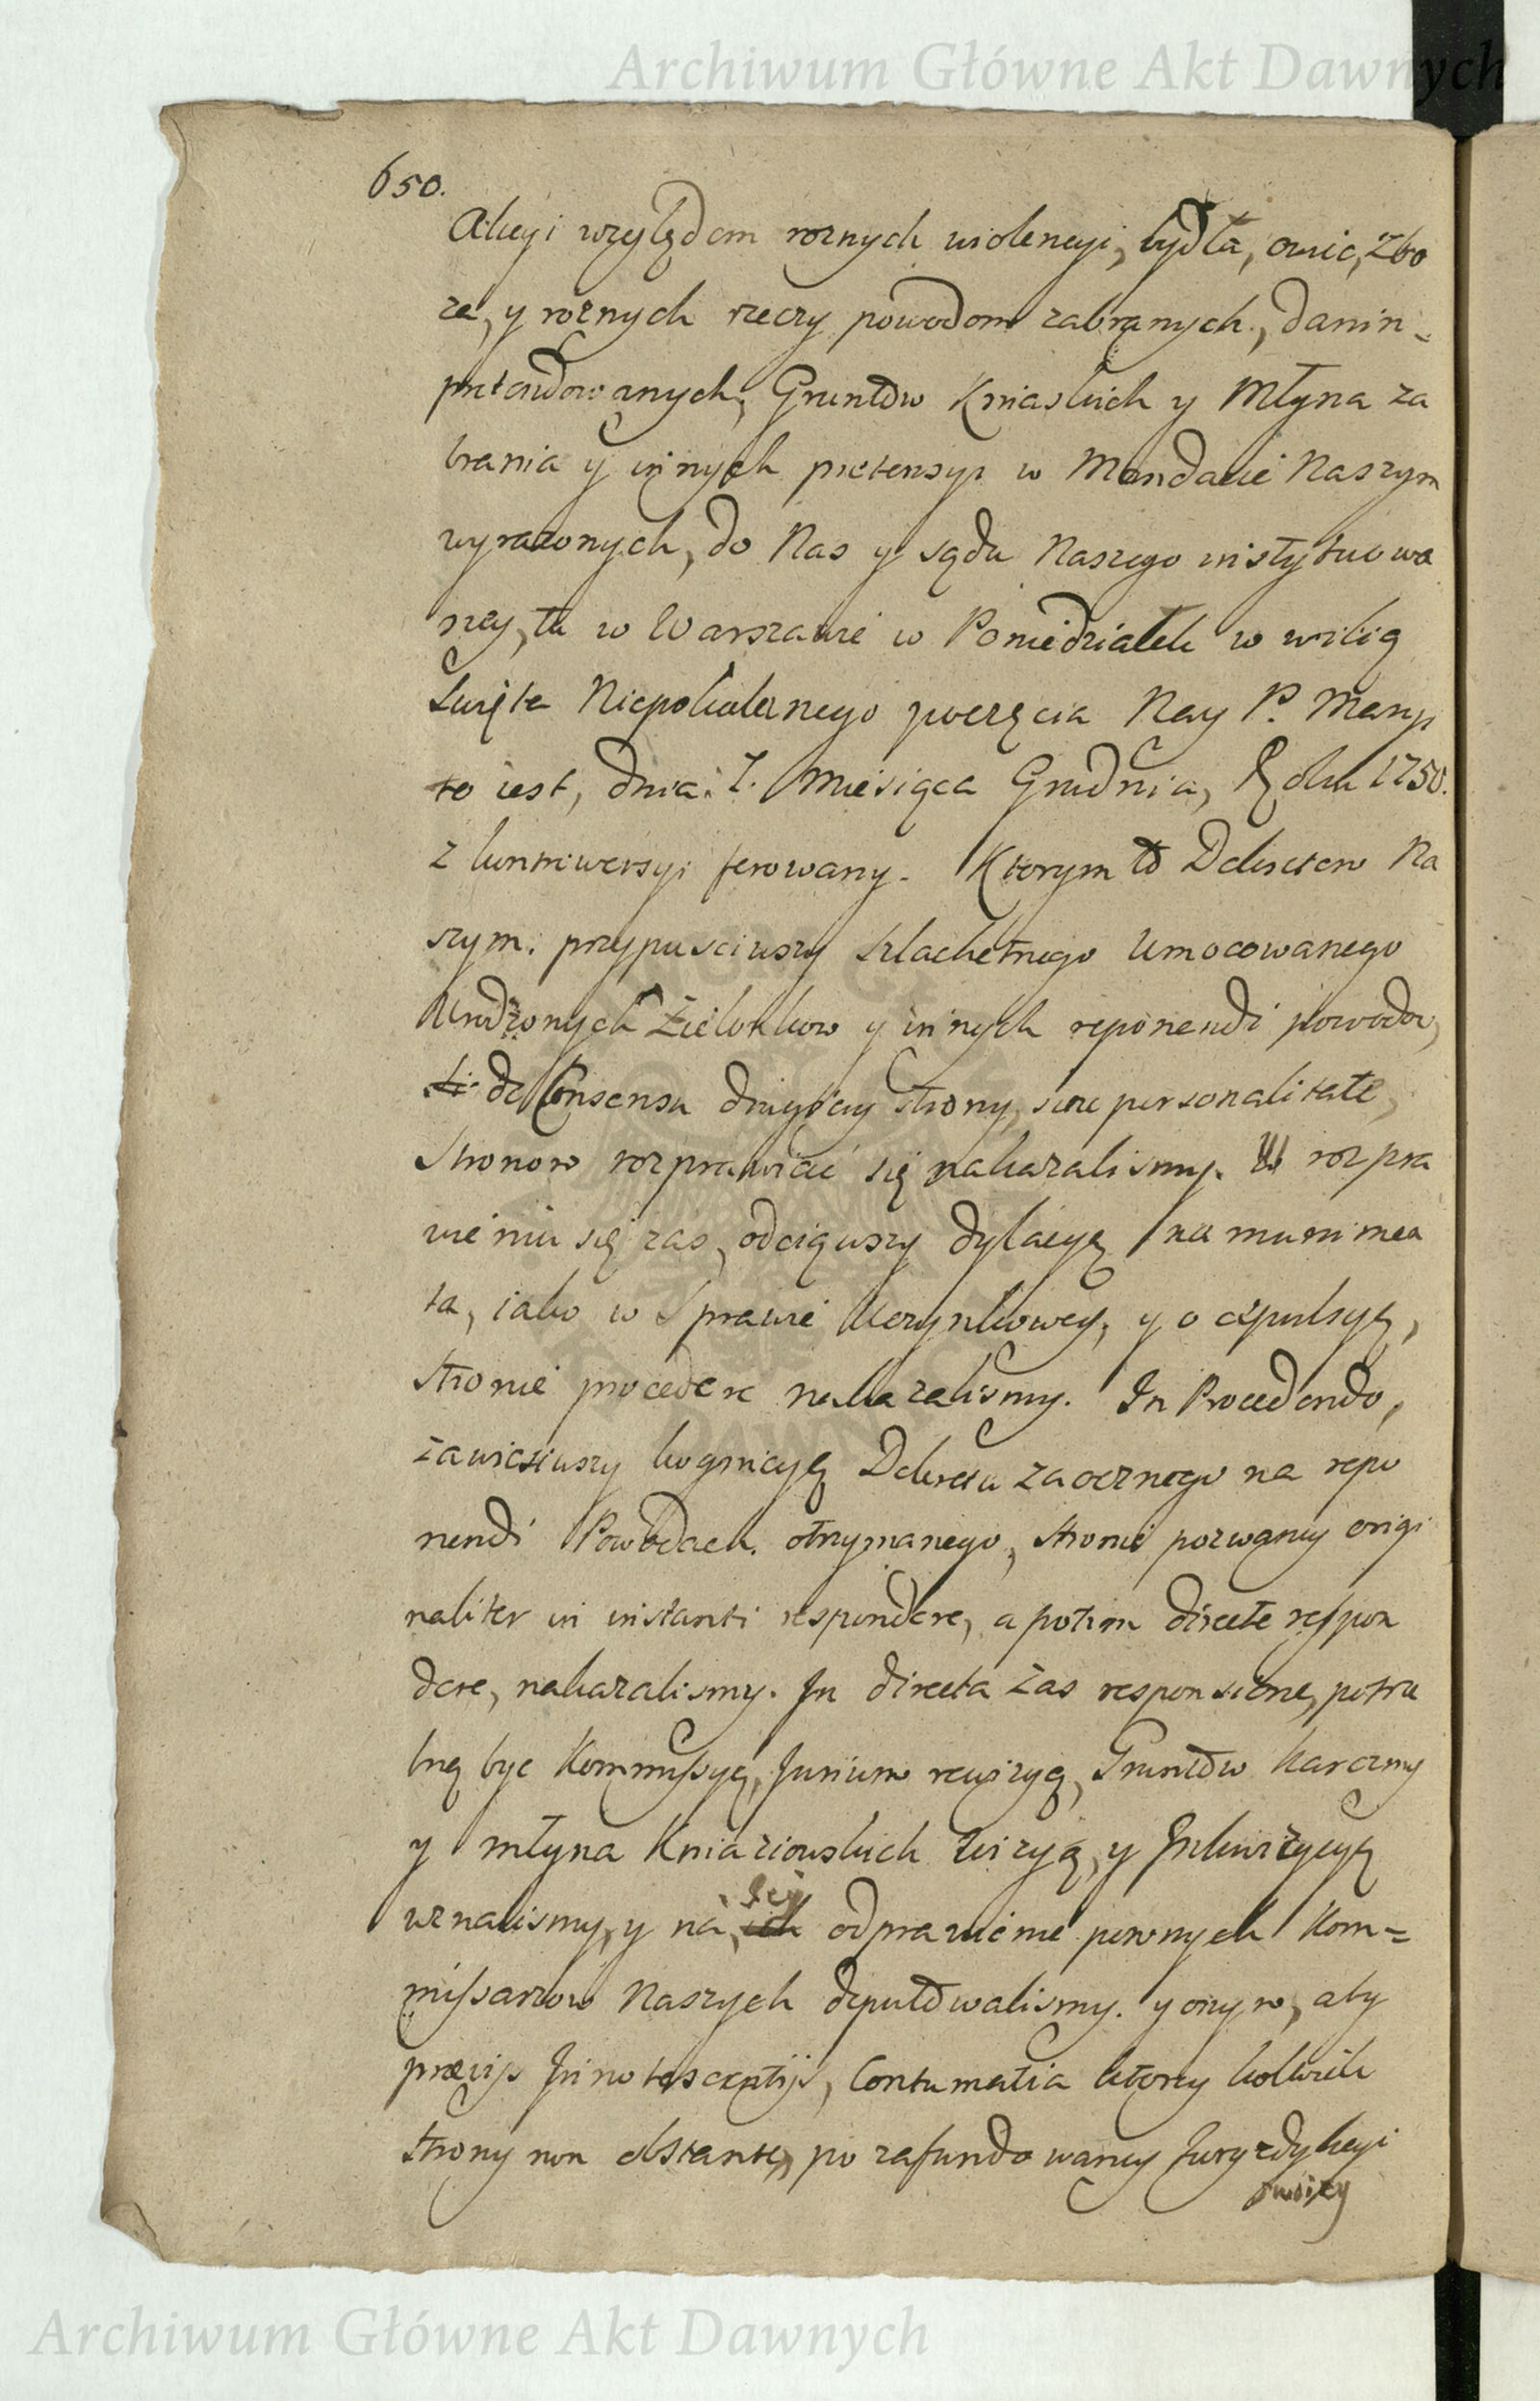 Archiwum Główne Akt Dawnych
650.
Akcyi względem roznych wiolencyi, bydła, owiec, zbo
ża, y roznych rzeczy powodom zabranych, danin
pretendowanych, Gruntow Kniaskich y Młyna za
brania y innych pretensyi w Mandacie Naszym
wyrazonych, do Nas y sądu Naszego instytuowa
ney, tu w Warszawie w Poniedziałek w wilią
Swięta Niepokalanego poczęcia Nay P. Maryi
to iest, dnia 7. Miesiąca Grudnia, Roku 1750.
z kontrowersyi ferowany. Ktorym to Dekretem Na
szym. przypusciwszy szlachetnego Umocowanego
Urodzonych Zielonkow y innych reponendi powodow,
de Consensu drugiey strony, sine personalitate,
Stronom rozprawiać się nakazalismy. W rozpra
wieniu się zas, odciąwszy dylacyą na munimen
ta, iako w Sprawie Uczynkowey, y o expulsyą,
Stronie procedere nakazalismy. In Procedendo,
zawiesiwszy kognicyą Dekretu zaocznego na repo
nendi Powodach. otrzymanego, stronie pozwaney origi
naliter in instanti respondere, a potim directe respon
dere, nakazalismy. In directa zas responsione, potrze
bną byc Kommissyą, Jurium rewizyą, Gruntow karczmy
y młyna Kniaziowskich wizyą, y Inkwizycyą
uznalismy, y na iey odprawienie pewnych Kom=
missarzow Naszych deputowalismy. y onym, aby
prævijs Innotescentijs, Contumatia ktorey kolwiek
strony non obstante, po zafundowaney Juryzdykcyi
swoiey
Archiwum Główne Akt Dawnych